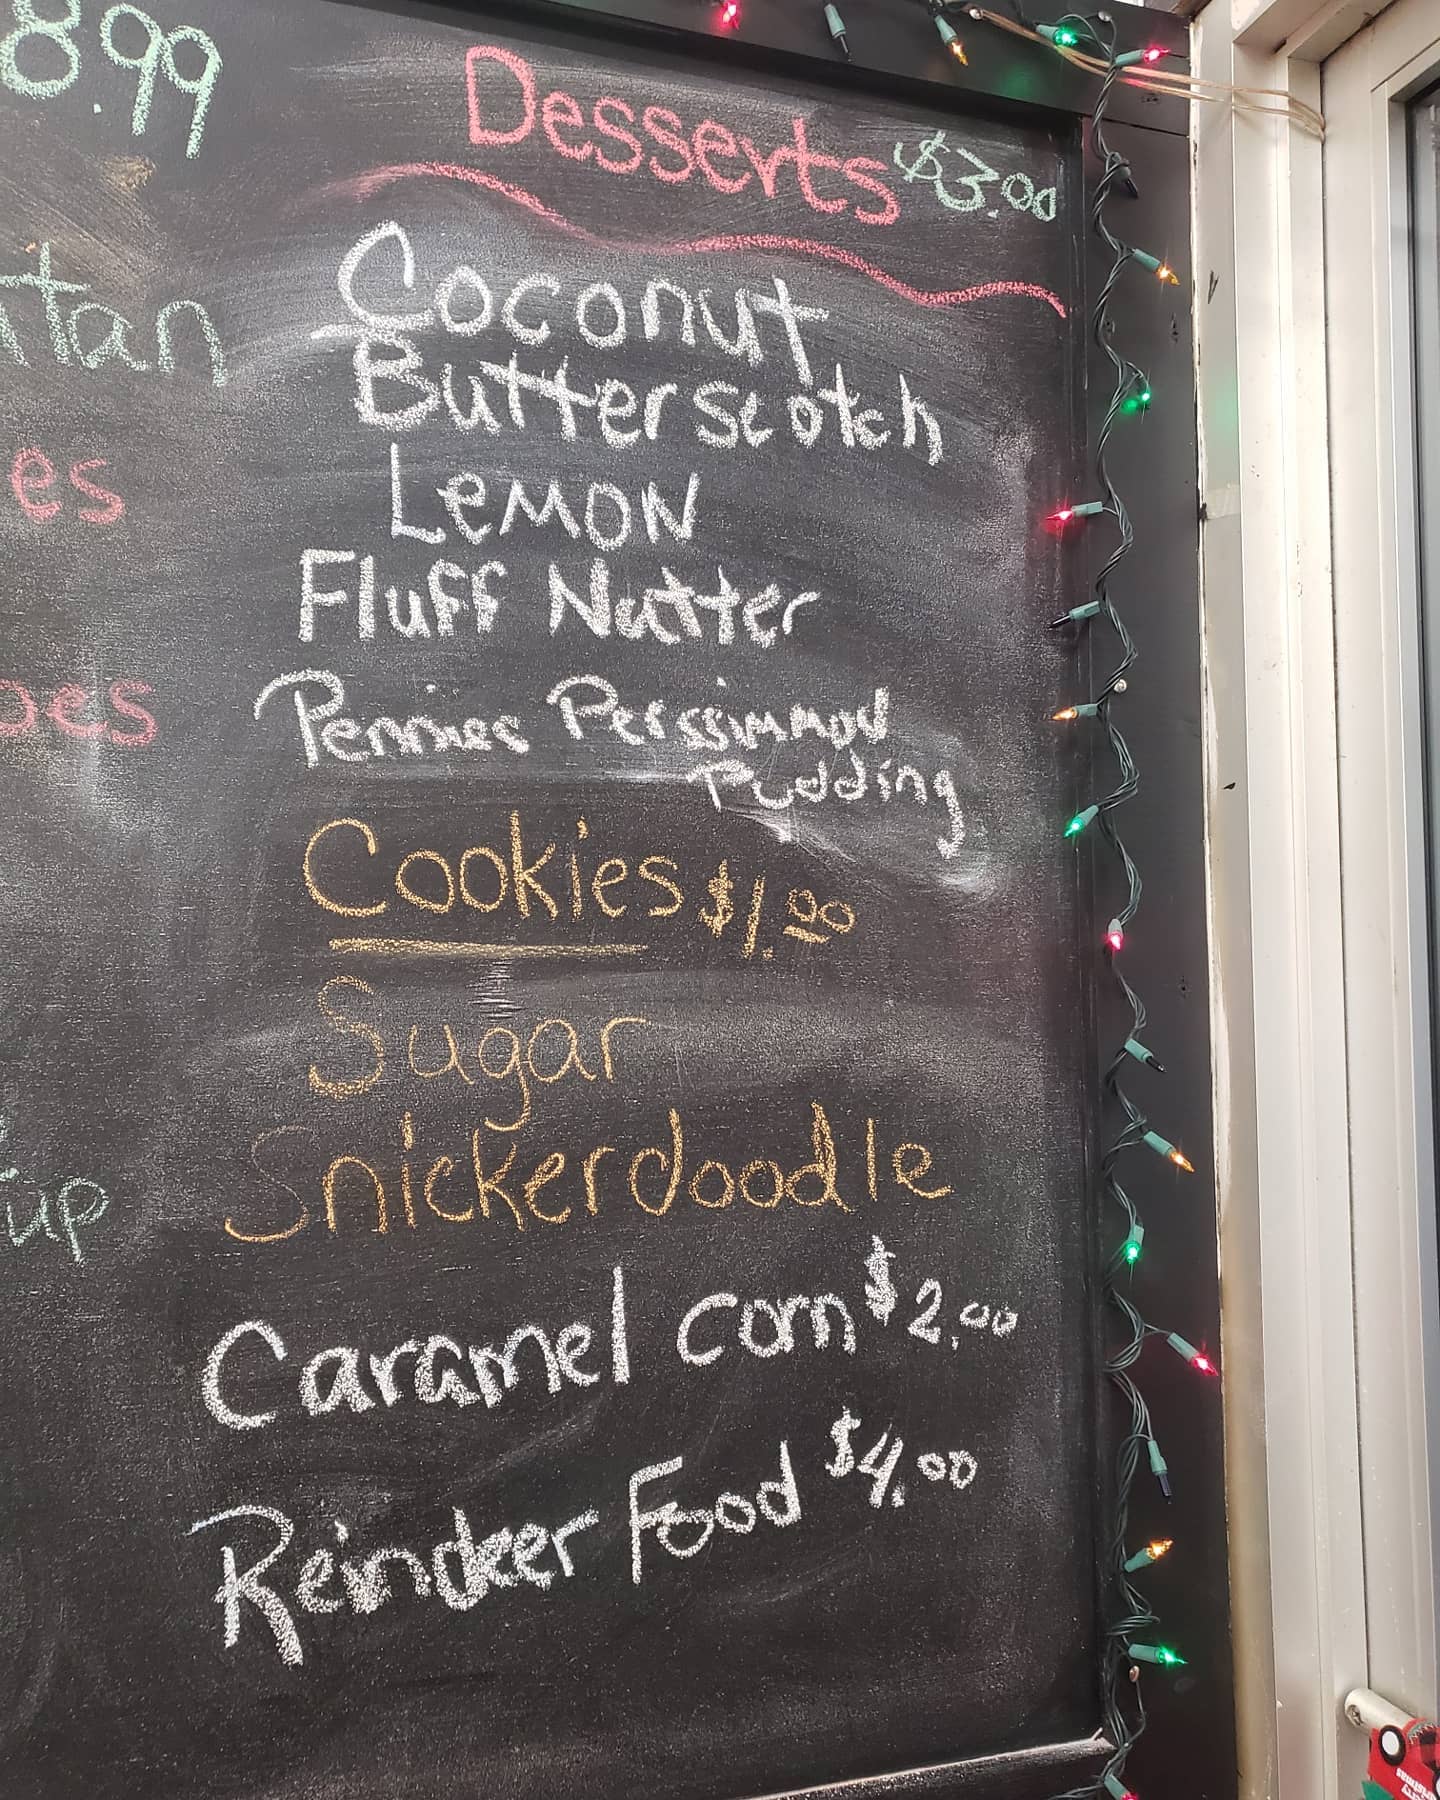 8.99
Desserts $3.00
Coconut
Butterscotch
Lemon
Fluff Nutter
Pennies Perssimmon
Pudding
Cookies $1.00
Sugar
Snickerdoodle
Caramel corn $2.00
Reindeer Food $4.00